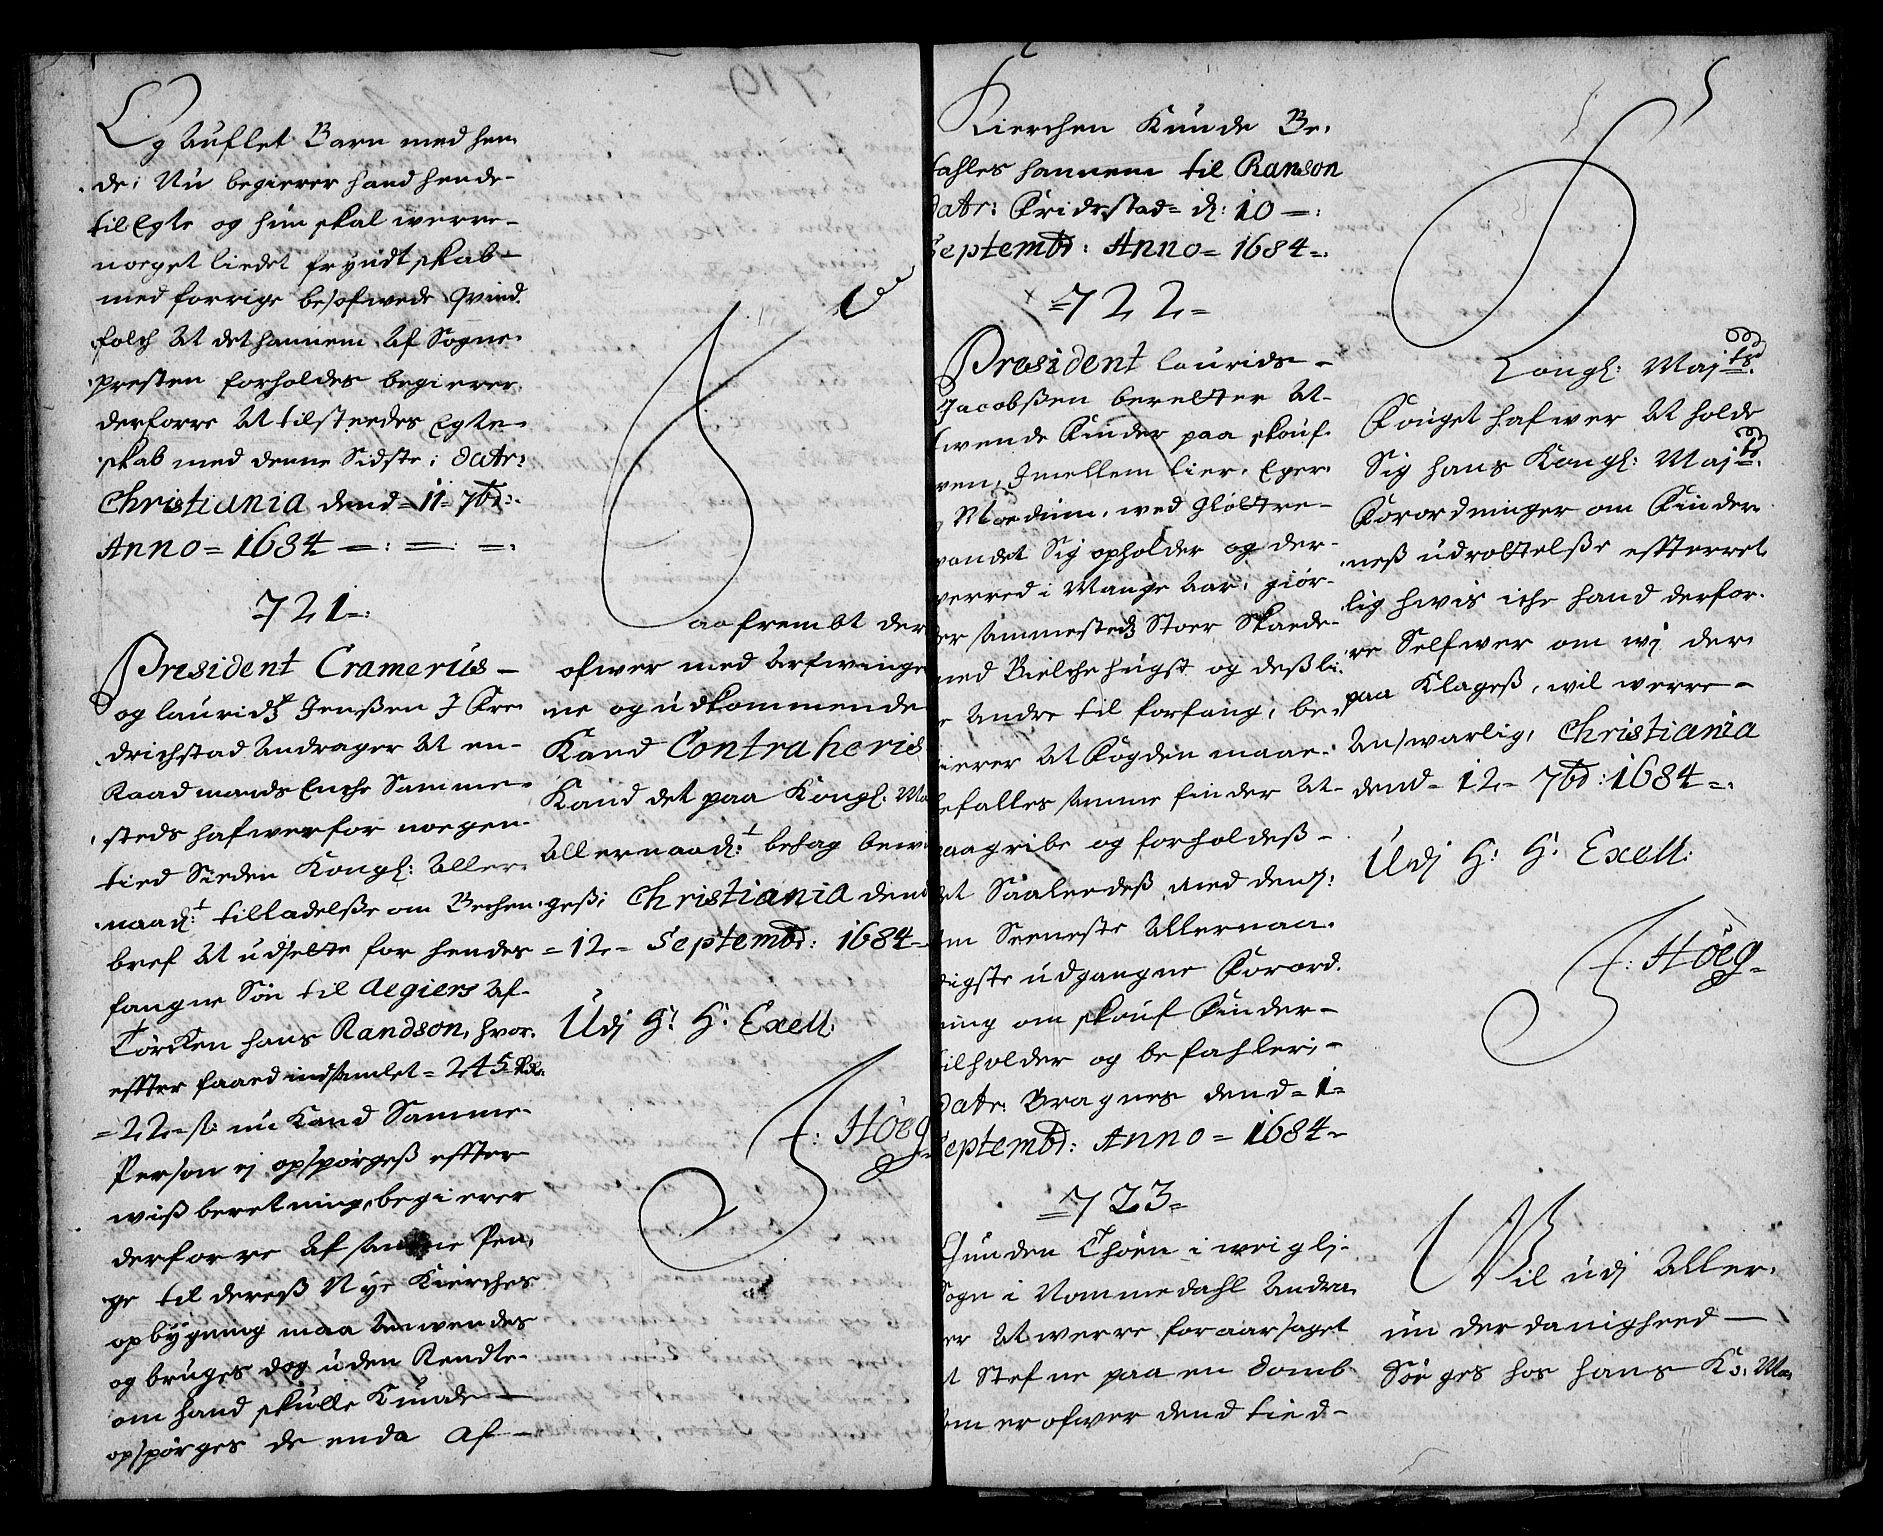 Og Auflet Barn med hen,
de; Nu begierer hand hende
til Egte og hun skal werre
noeget liedet fryndtskab
med forrige besofwede Qvind,
folch At det hannem Af Sogne,
presten forholdes begierer
derforre At tilsteedes Egte,
skab med denne Sidste; Datr:
Christiania dend = 11 = 7br:
Anno = 1684 =: =: =:
721=:
President Cramerus
og lauridz Jenßen J Fre
drichstad Andrager At en
Raadmands Enche Samme,
steds hafwer for noegen
tied Sieden Kongl: Aller,
naad: tilladelße om Bechen
bref At udsette for hendes
fangne Søn til Aegiers Af
Törcken hans Randson, hvor,
effter faaed indsamlet = 245 Rd:
= 22 = s: nu Kand Samme
Person ej opspørgeß effter
wiß beretning, begierer
derforre Af samme Pen,
ge til dereß Nye Kierches
opbygning maa Anwendes
og bruges dog uden Rendte
om hand skulle Kunde
opspørges de enda Af
719
aafrembt der
ofwer med Arfwinge
ne og udkommende
Kand Contraheris
Kand det paa Kongl: Ma
Allernaad: behag bewi
geß; Christiania dend
= 12 = Septembr: 1684 =
Udj H: H: Exell:
F: Höeg
Kierchen Kunde Be,
tahles hannem til Ranson
Datr: Fridrstad = d: 10 =:
Septembr: Anno = 1684 =:
= 722 =
President laurids
Jacobßen beretter At
twende Finder paa skouf
wen, Jmellem lier, Eger
Moedum, wed Glottre
wandet Sig opholder og der
werred i Mange Aar, giör
der sammestedz Stoer Skaede
med Bielchehugst og deßli
Andre til forfang, be,
gierer At Fogden maae
befalles samme finder At
paagribe og forholdeß
det Saaleedeß med dem,
om Seeneste Allernaa,
digste udgangne Forord,
ning om skouf Finder
tilholder og befahler;
Datr: Bragnes dend = 1 =
Septembr: Anno = 1684 =
= 723 =
Gunden Thöen i weiglj
Sogn i Nommedahl Andra
er At werre foraarsaget
At Stefne paa en Domb
som er ofwer dend tied
Kongl: Majts:
Fouget hafwer At holde
Sig hans Kongl: Majts:
Forordninger om Finder,
neß udrottelße effterret
lig hwis iche hand derfor,
re Selfwer om wj der
paa Klageß, wil werre
Answarlig, Christiania
dend = 12 = 7br: 1684 =:
Udj H: H: Exell:
F: Höeg
Wil udj Aller,
underdanigheed
Söeges hos hans Ko: Ma,